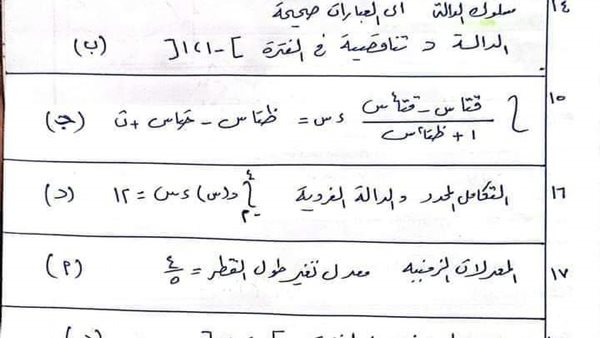 ١٤ سلوك الدالة أى العبارات صحيحة
الدالة د تناقصية فى الفترة ]-١،١[ (ب)
١٥ ∫ (قتاس - قتاس) / (١ + ظتا٢س) ءس = ظتاس - جتاس + ث (ج)
١٦ التكامل المحدد والدالة الفردية ∫ د(س) ءس = ١٢ (د)
١٧ المعدلات الزمنية معدل تغير طول القطر = ٤/٥ (٢)